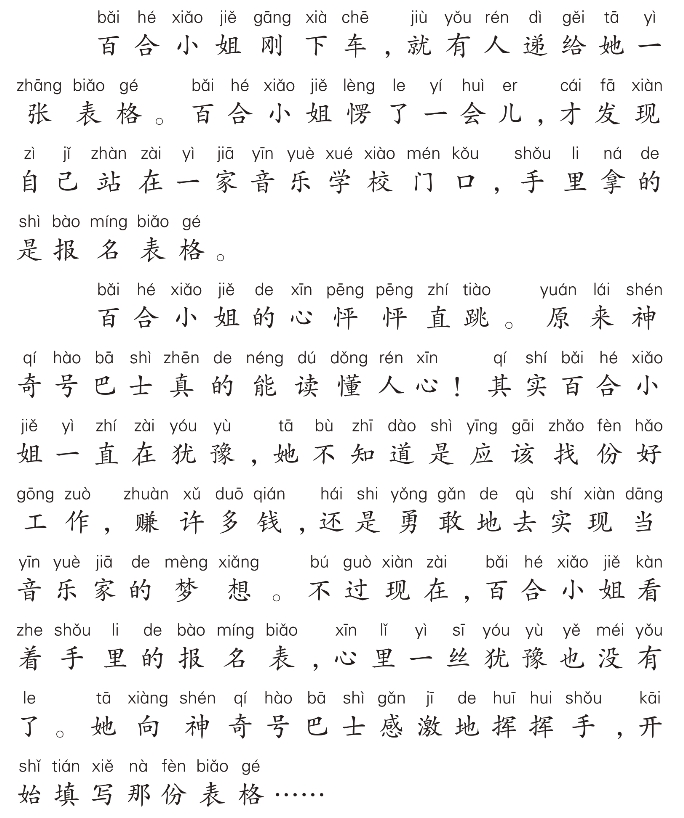 bǎi hé xiǎo jiě gāng xià chē jiù yǒu rén dì gěi tā yì
百合小姐刚下车，就有人递给她一
zhāng biǎo gé bǎi hé xiǎo jiě lèng le yí huì er cái fā xiàn
张表格。百合小姐愣了一会儿，才发现
zì jǐ zhàn zài yì jiā yīn yuè xué xiào mén kǒu shǒu li ná de
自己站在一家音乐学校门口，手里拿的
shì bào míng biǎo gé
是报名表格。
bǎi hé xiǎo jiě de xīn pēng pēng zhí tiào yuán lái shén
百合小姐的心怦怦直跳。原来神
qí hào bā shì zhēn de néng dú dǒng rén xīn qí shí bǎi hé xiǎo
奇号巴士真的能读懂人心！其实百合小
jiě yì zhí zài yóu yù tā bù zhī dào shì yīng gāi zhǎo fèn hǎo
姐一直在犹豫，她不知道是应该找份好
gōng zuò zhuàn xǔ duō qián hái shi yǒng gǎn de qù shí xiàn dāng
工作，赚许多钱，还是勇敢地去实现当
yīn yuè jiā de mèng xiǎng bú guò xiàn zài bǎi hé xiǎo jiě kàn
音乐家的梦想。不过现在，百合小姐看
zhe shǒu li de bào míng biǎo xīn lǐ yì sī yóu yù yě méi yǒu
着手里的报名表，心里一丝犹豫也没有
le tā xiàng shén qí hào bā shì gǎn jī de huī hui shǒu kāi
了。她向神奇号巴士感激地挥挥手，开
shǐ tián xiě nà fèn biǎo gé
始填写那份表格……